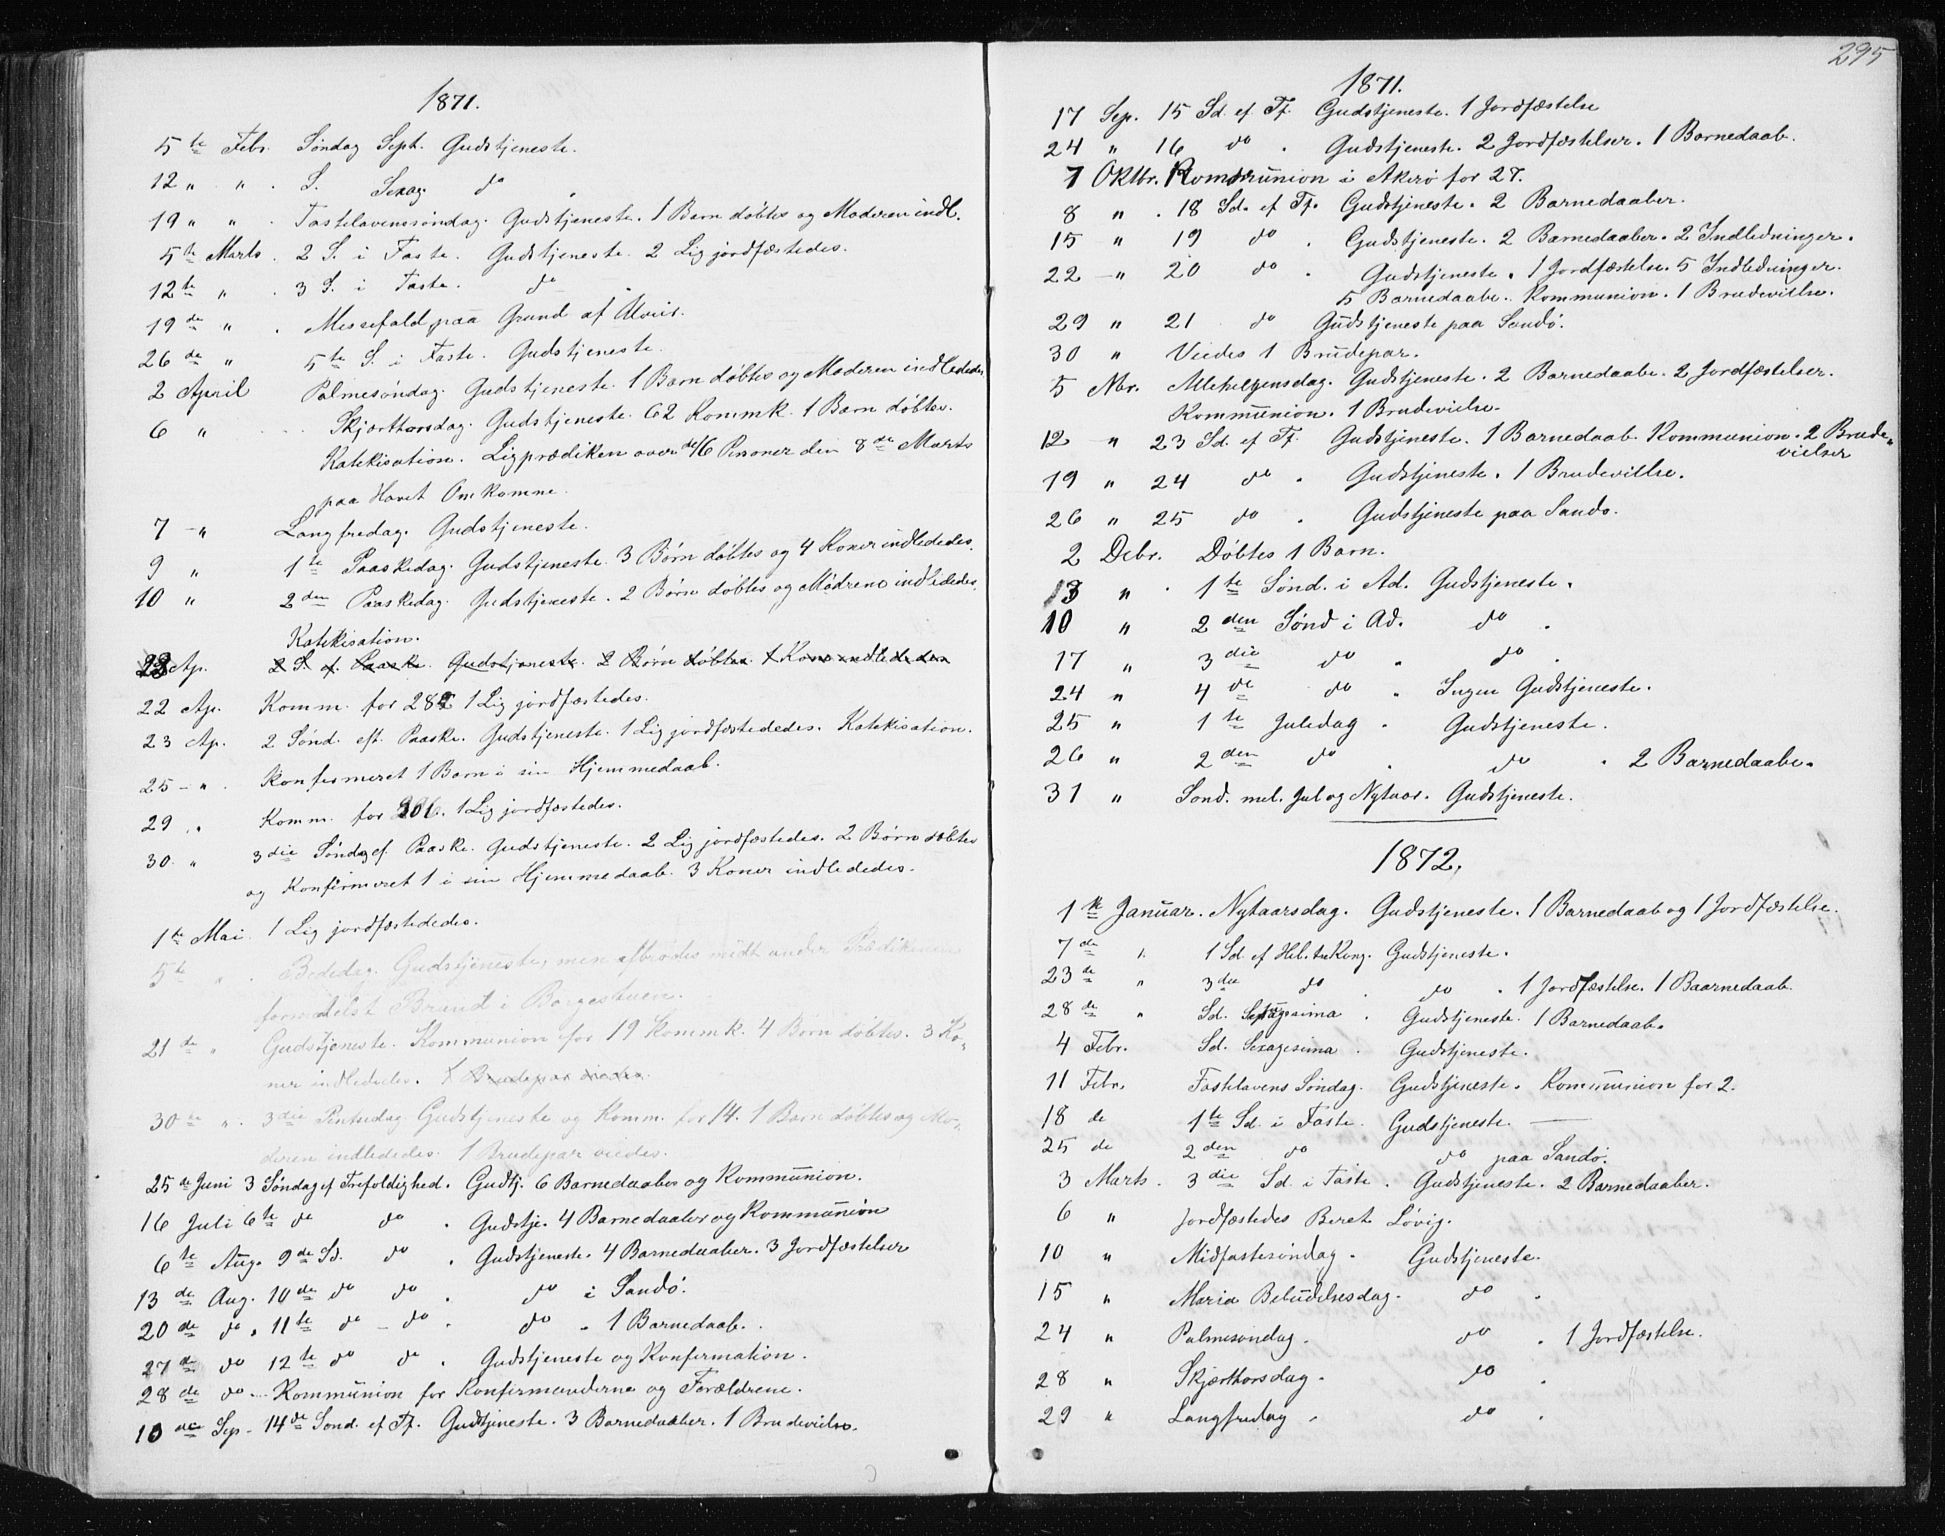 1871.
5te Febr. Søndag Sept. Gudstjeneste.
12 " " . S. Sexag. do .
19 " " . Fastelavenssøndag. Gudstjeneste. 1 Barn døbtes og Moderen indl.
5te Marts . 2 S. i Faste. Gudstjeneste. 2 Lig jordfæstedes.
12te " . 3 S. i Faste. do
19de " . Messefald paa Grund af Uveir.
26de " 5te S. i Faste. Gudstjeneste.
2 April Palmesøndag. Gudstjeneste. 1 Barn døbtes og Moderen indlededes
6 " Skjærthorsdag. Gudstjeneste. 62 Kommk. 1 Barn døbtes.
Katekisation. Ligprædiken over de 16 Personer den 8de Marts
paa Havet Omkomne.
7 - " Langfredag. Gudstjeneste.
9 " 1te Paaskedag. Gudstjeneste. 3 Børn døbtes og 4 Koner indlededes.
10 " 2den Paaskedag. Gudstjeneste. 2 Børn døbtes og Mødrene indlededes.
Katekisation.
23 Ap. 2 S. ef. Paaske. Gudstjeneste. 2 Børn døbtes. 1 Kone indlededes
22 Ap. Komm. for 1 Lig jordfæstedes.
23 Ap. 2 Sønd. eft. Paaske. Gudstjeneste. 1 Lig jordfæstededes. Katekisation.
25 - " . Konfirmeret 1 Barn i sin Hjemmedaab.
29 " Komm. for 1 Lig jordfæstedes.
30 " 3die Søndag ef. Paaske. Gudstjeneste. 2 Lig jordfæstedes. 2 Børn døbtes
og Konfirmeret 1 i sin Hjemmedaab. 3 Koner indlededes.
1te Mai. 1 Lig jordfæstededes.
5te " . Bededag. Gudstjeneste, men afbrødes midt under Prædikenen
formedelst Brand i Borgestuen.
21de " Gudstjeneste. Kommunion for 19 Kommk. 4 Børn døbtes. 3 Ko-
ner indlededes. 1 Brudepar viedes.
30te " . 3die Pintsedag. Gudstjeneste og Komm. for 14. 1 Barn døbtes og Mo-
deren indlededes. 1 Brudepar viedes.
25de Juni 3 Søndag ef Trefoldighed. Gudtj. 6 Barnedaaber og Kommunion.
16 Juli 6te do do . Gudstje. 4 Barnedaaber og Kommunion
6te Aug. 9de Sd. do . Gudstjeneste. 4 Barnedaaber. 3 Jordfæstelser
13de Aug. 10de do do . do i Sandø.
20de do . 11te do - do . do . 1 Barnedaab.
27de do 12te do do . Gudstjeneste og Konfirmation.
28de do - Kommunion for Konfirmanderne og Forældrene.
10de Sep. 14de Sønd. ef Tf. Gudstjeneste. 3 Barnedaaber. 1 Brudevielse.
295
1871.
17 Sep. 15 Sd. ef Tf. Gudstjeneste. 1 Jordfæstelse
24 " 16 do . Gudstjeneste. 2 Jordfæstelser. 1 Barnedaab.
7 Oktbr. Kommunion i Akerø for 27.
8 " . 18 Sd. ef Tf. Gudstjeneste. 2 Barnedaaber.
15 " 19 do . Gudstjeneste. 2 Barnedaaber. 2 Indledninger.
22 - " 20 do . Gudstjeneste. 1 Jordfæstelse. 5 Indledninger.
5 Barnedaabe. Kommunion. 1 Brudevielse.
29 " 21 do Gudstjeneste paa Sandø.
30 " Viedes 1 Brudepar.
5 Nbr. Allehelgensdag. Gudstjeneste. 2 Barnedaabe. 2 Jordfæstelser.
Kommunion. 1 Brudevielse.
12 " 23 Sd. ef Tf. Gudstjeneste. 1 Barnedaab. Kommunion. 2 Brude-
vielser
19 " 24 do . Gudstjeneste. 1 Brudevielse.
26 " 25 do . Gudstjeneste paa Sandø.
2 Debr. Døbtes 1 Barn.
3 " . 1te Sønd. i Ad. Gudstjeneste.
10 " 2den Sønd i Ad. do .
17 " 3die do . do .
24 " 4de do . Ingen Gudstjeneste.
25 " 1te Juledag . Gudstjeneste.
26 " 2den do . do . 2 Barnedaabe.
31 " Sønd. mel. Jul og Nytaar. Gudstjeneste.
1872.
1te Januar. Nytaarsdag. Gudstjeneste. 1 Barnedaab og 1 Jordfæstelse.
7de " 1 Sd. ef Hel. tre Kong. Gudstjeneste.
23de " 3die do . do . 1 Jordfæstelse. 1 Baarnedaab.
28de " Sd. Septuagesima . Gudstjeneste. 1 Barnedaab.
4 Febr. Sd. Sexagesima . Gudstjeneste.
11 Febr. Fastelavens Søndag. Gudstjeneste. Kommunion for 2.
18 de 1te Sd. i Faste. Gudstjeneste.
25 de 2den do do paa Sandø.
3 Marts. 3die Sd. i Faste. Gudstjeneste. 2 Barnedaaber.
6 " Jordfæstedes Beret Løvig.
10 " Midfastesøndag. Gudstjeneste.
15 " Maria Bebudelsesdag. do .
24 " Palmesøndag. do . 1 Jordfæstelse.
28 " Skjærthorsdag. do .
29 " Langfredag . do .